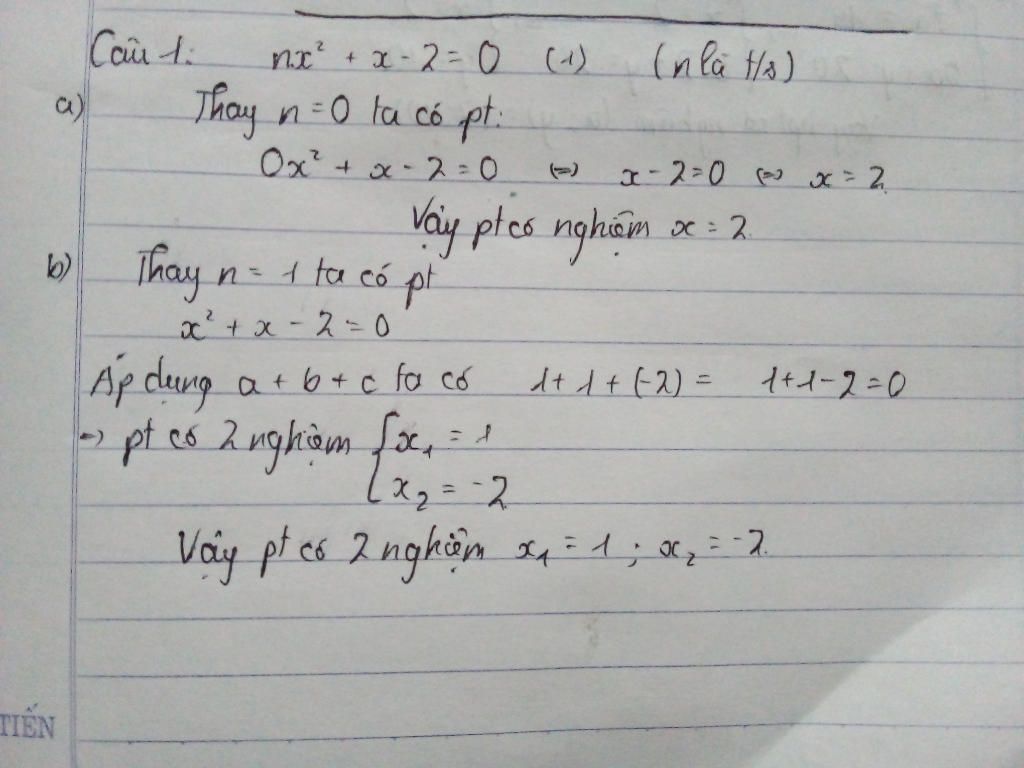 Câu 1: nx² + x - 2 = 0 (1) (n là t/s)
a) Thay n = 0 ta có pt:
0x² + x - 2 = 0 <=> x - 2 = 0 <=> x = 2
Vậy pt có nghiệm x = 2
b) Thay n = 1 ta có pt
x² + x - 2 = 0
Áp dụng a + b + c ta có 1 + 1 + (-2) = 1 + 1 - 2 = 0
=> pt có 2 nghiệm { x₁ = 1
x₂ = -2
Vậy pt có 2 nghiệm x₁ = 1 ; x₂ = -2.
TIẾN